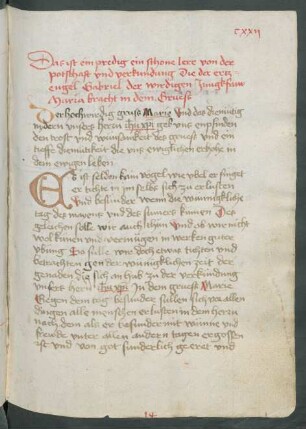 cxxii
Das ist ein predig ein schone lere von der
potschaft und verkundung Die der ercz
engel Gabriel der wirdigen Jungkfraw
Maria bracht in dem Gruess
Der hochwirdig gruss Marie und das demutig
unsers herrn geb uns empfinden
den trost und des gruss und ein
die uns ewiglichen erhohe in
dem ewigen leben
Es ist selden kain vogel wie ubel er singet
er tichte in im selbs sich zu erlusten
Und besunder wenn die wunnigkliche
tag des mayens und des sumers kumen Des
geleichen sulle wir auch tun Und ob wir nicht
wol kunnen und vermugen in werken guter
ubung So sulle wir doch etwas tichten und
betrachten gen der wunigklichen zeit der
genaden die sich an hub zu der verkundung
unsers herrn In dem gruess Marie
Gegen dem tag besunder sullen sich vor allen
dingen alle menschen erlusten in dem herrn
nach dem als er besunder mit wunne und
frewde unter allen andern tagen ergossen
ist und von got sunderlich geeret und
14